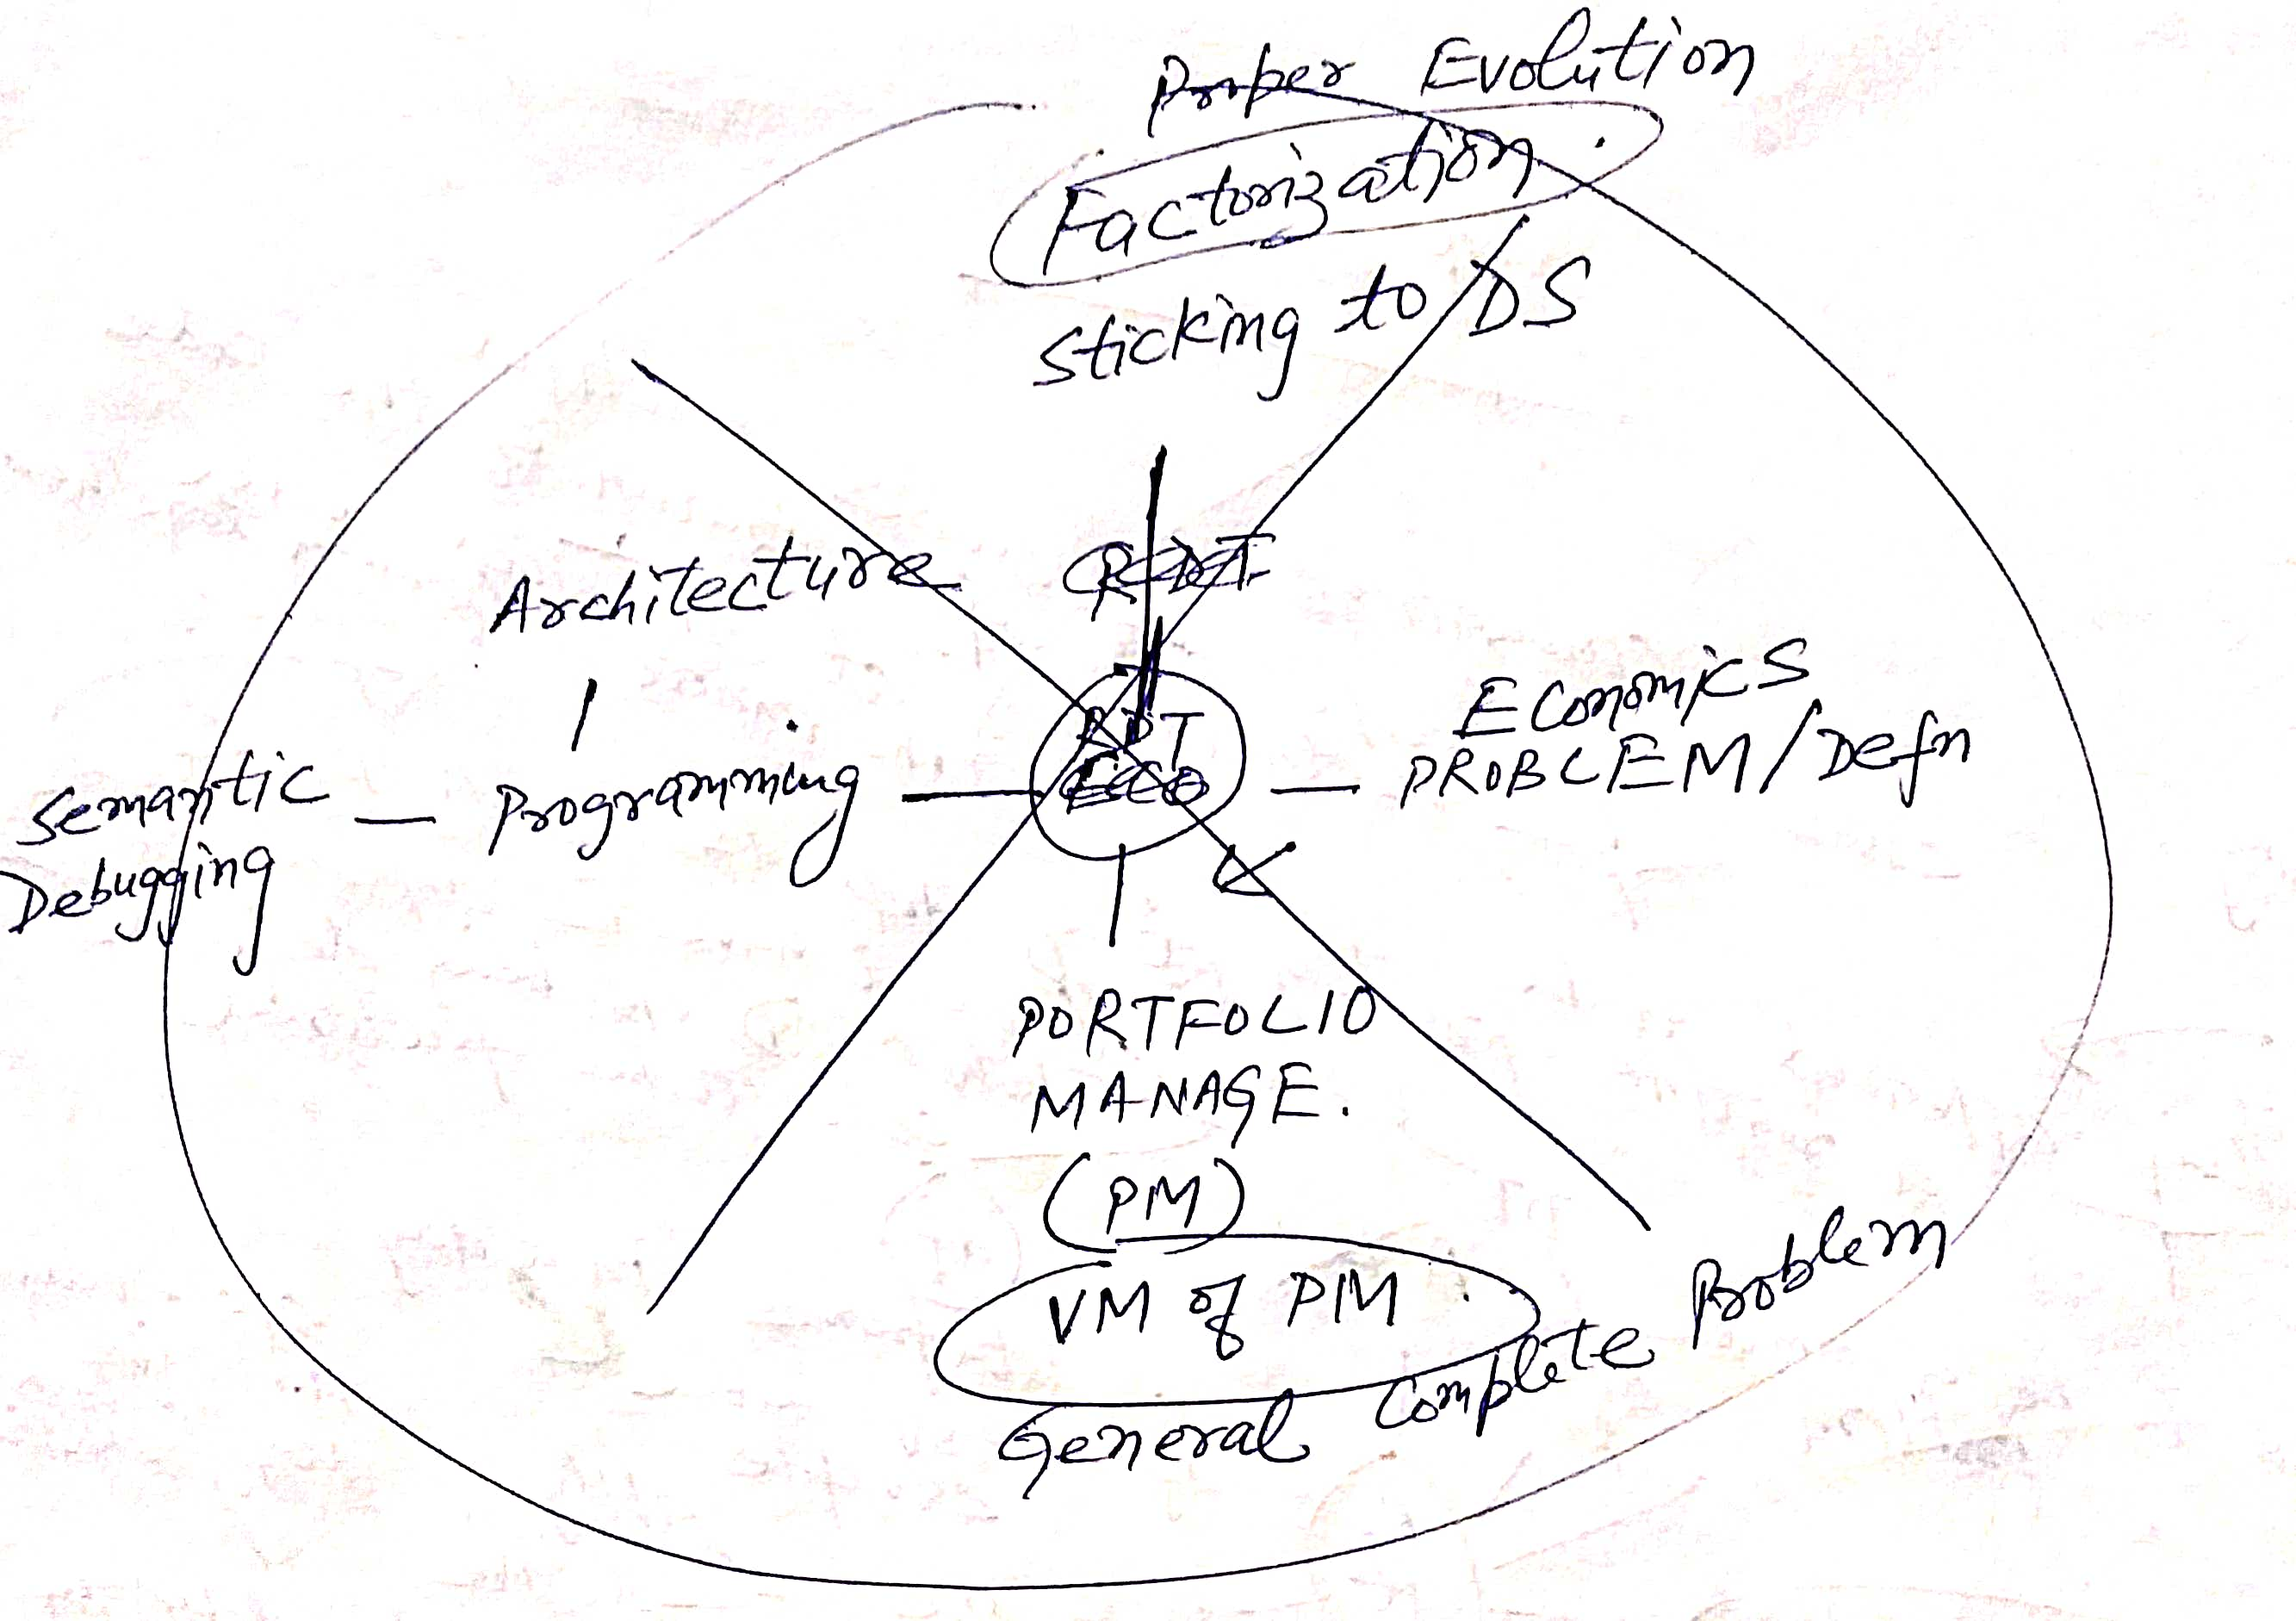 Proper Evolution
Factorization
sticking to DS
Architecture
Economics
PROBLEM/Defn
Semantic
Debugging
Programming
PORTFOLIO
MANAGE.
(PM)
VM of PM
General Complete Problem